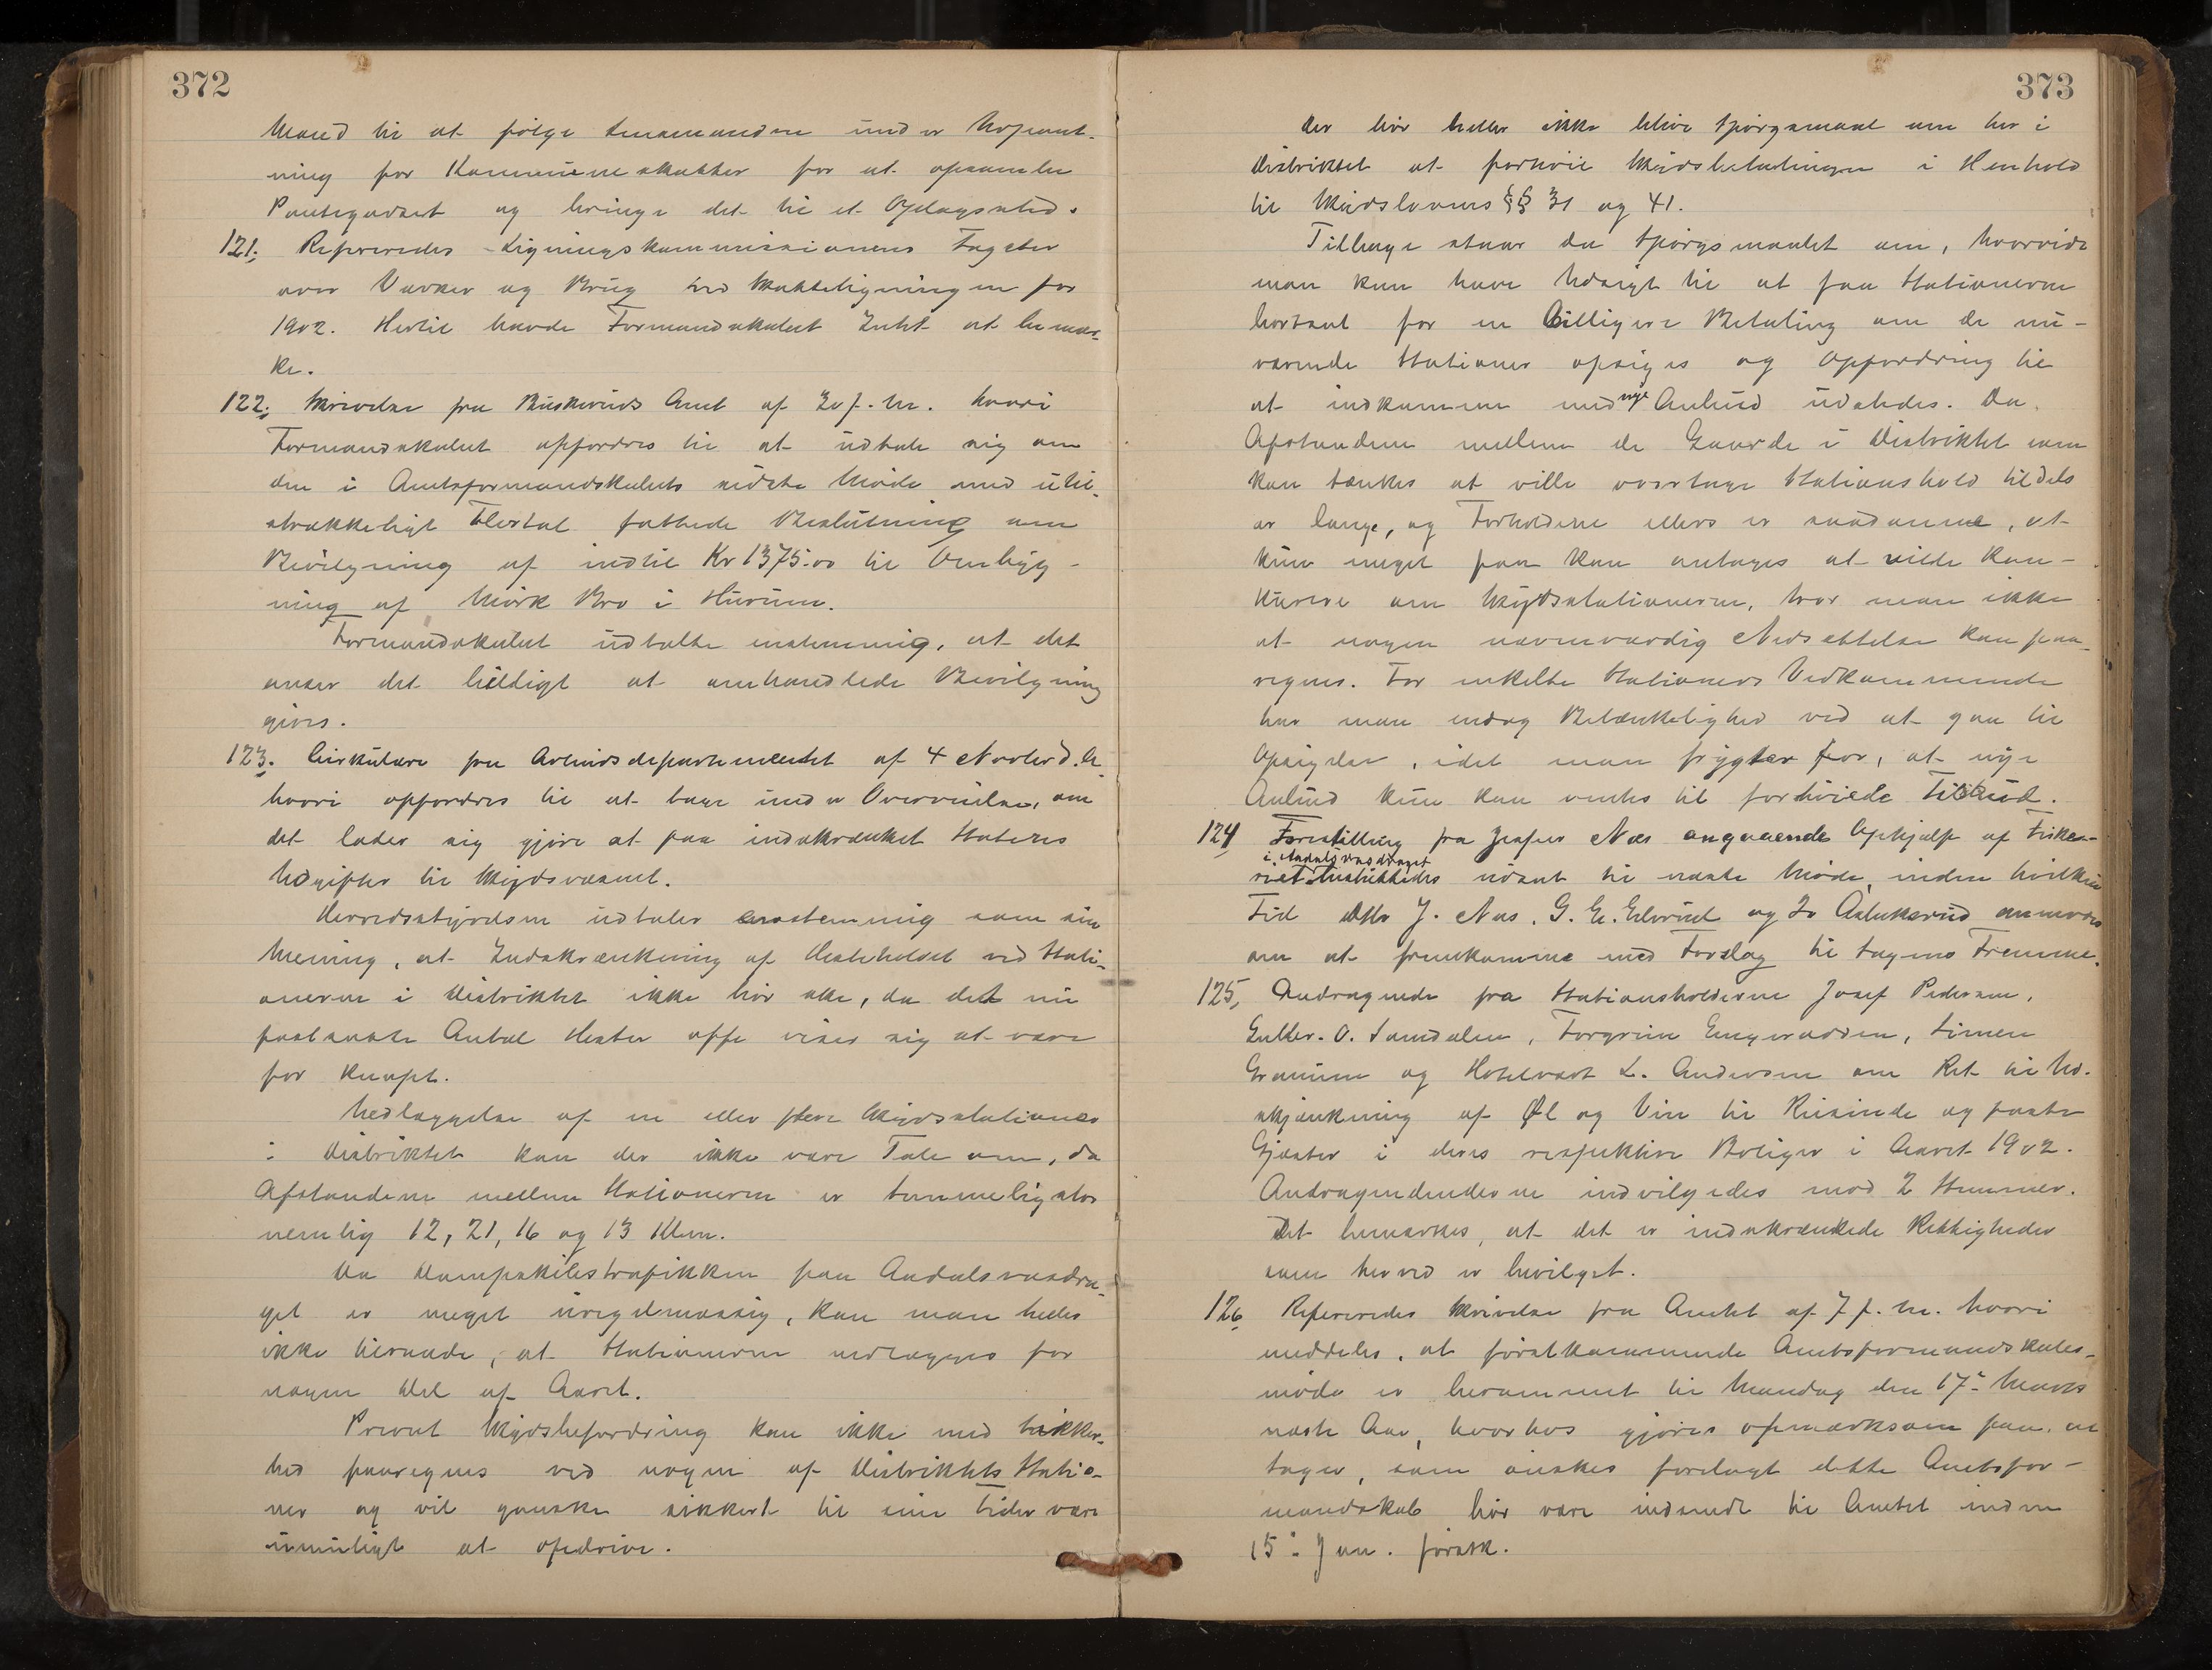 372
Mand til at følge Lensmanden under Inspant-
ning for Kommuneskatter for at opsamle
Pantegodset og bringe det til et Oplagssted.
121. Refereredes Ligningskommissionens Fagster
over Værker og Brug ved Skatteligningen for
1902. Hertil havde Formandskabet Intet at bemær-
ke.
122. Skrivelse fra Buskeruds Amt af 20 f. M. hvori
Formandskabet opfordres til at udtale sig om
den i Amtsformandskabets sidste Møde med util-
strækkeligt Flertal fattede Beslutning om
Bevilgning af indtil Kr 1375.00 til Ombyg-
ning af Mörk Bro i Hurum.
Formandskabet udtalte enstemmig, at det
anser det billigt at omhandlede Bevilgning
gives.
123. Cirkulære fra Arbeidsdepartementet af 4 Novbr d. A.
hvori opfordres til at tage under Overveielse, om
det lader sig gjøre at faa indskrænket Statens
Udgifter til Skydsvæsenet.
Herredsstyrelsen udtaler enstemmig som sin
Mening, at Indskrænkning af Hesteholdet ved Stati-
onerne i Distriktet ikke bør ske, da det nu
fastsatte Antal Hester ofte viser sig at være
for knapt.
Nedlæggelse af en eller flere Skydsstationer
i Distriktet kan der ikke være Tale om, da
Afstandene mellem Stationerne er temmelig stor
nemlig 12, 21, 16 og 13 Klm.
Da Dampskibstrafikken paa Aadalsvasdra-
get er meget uregelmæssig, kan man heller
ikke tilraade, at Stationerne nedlægges for
nogen Del af Aaret.
Privat Skydsbefordring kan ikke med Sikker-
hed paaregnes ved nogen af Distriktets Statio-
ner og vil ganske sikkert til sine Tider være
umuligt at opdrive.
373
Der bør heller ikke blive Spørgsmaal om her i
Distriktet at forhøie Skydsbetalingen i Henhold
til Skydslovens §§ 31 og 41.
Tilbage staar da Spørgsmaalet om, hvorvidt
man kan have Udsigt til at faa Stationerne
bortsat for en billigere Betaling om de nu-
værende Stationer opsiges og Opfordring til
at indkomme med nye Anbud udstedes. Da
Afstandene mellem de Gaarde i Distriktet som
kan tænkes at ville overtage Stationshold tildels
er lange, og Forholdene ellers er saadanne, at
kun meget faa kan antages at ville kon-
kurere om Skydsstationerne, tror man ikke
at nogen nævneværdig Nedsættelse kan paa-
regnes. For enkelte Stationers Vedkommende
har man endog Betænkelighed ved at gaa til
Opsigelse, idet man frygter for, at nye
Anbud kun kan ventes til forhøiede Tilbud.
124 Forestilling fra Jesper Næs angaaende Ophjælp af Fiske-
i Aadalsvasdraget
riet besluttedes udsat til næste Møde, inden hvilken
Tid DHr J. Næs, G. E. Elsrud og Io Aslaksrud anmodes
om at fremkomme med Forslag til Sagens Fremme.
125, Andragende fra Stationsholderne Josef Pedersen,
Guttor. O. Sandalen, Torgrim Engerødden, Simen
Granum og Hotelvært L. Andersen om Ret til Ud-
skjænkning af Øl og Vin til Reisende og faste
Gjæster i deres respektive Boliger i Aaret 1902.
Andragendenderne indvilgedes mod 2 Stemmer.
Det bemærkes, at det er indskrænkede Rettigheder
som herved er bevilget.
126 Refereredes Skrivelse fra Amtet af 7 f. M. hvori
meddeles, at førstkommende Amtsformandskabs-
møde er berammet til Mandag den 17de Marts
næste Aar, hvorhos gjøres opmærksom paa, at
Sager, som ønskes forelagt dette Amtsfor-
mandskab bør være indsendt til Amtet inden
15de Jan. førstk.